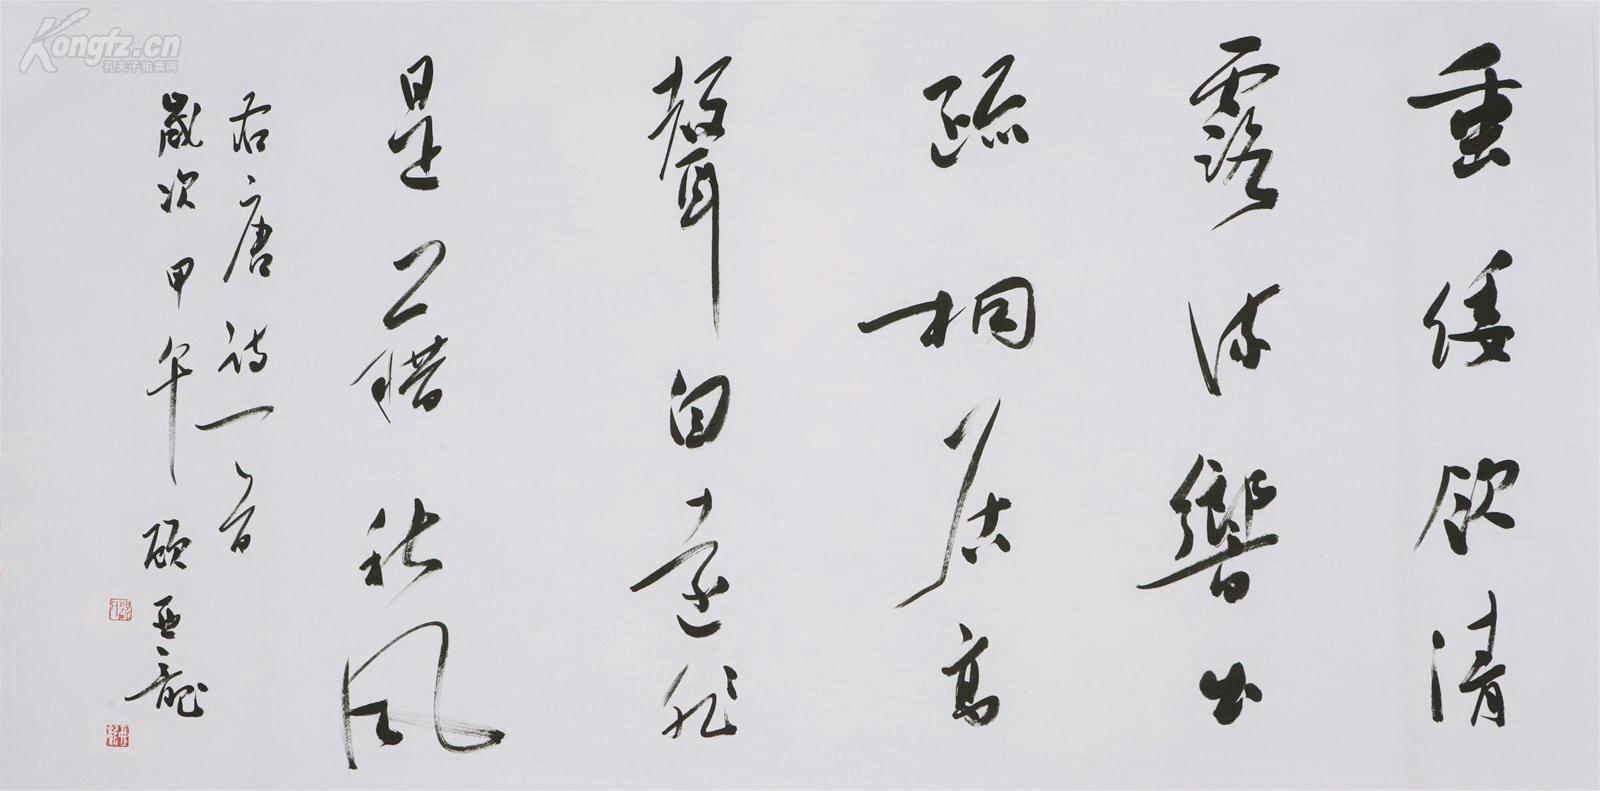 垂緌飲清
露流響出
疏桐居高
聲自遠非
是藉秋風
右唐詩一首
歲次甲午 顧亞龍
Kongfz.cn
孔夫子拍卖网